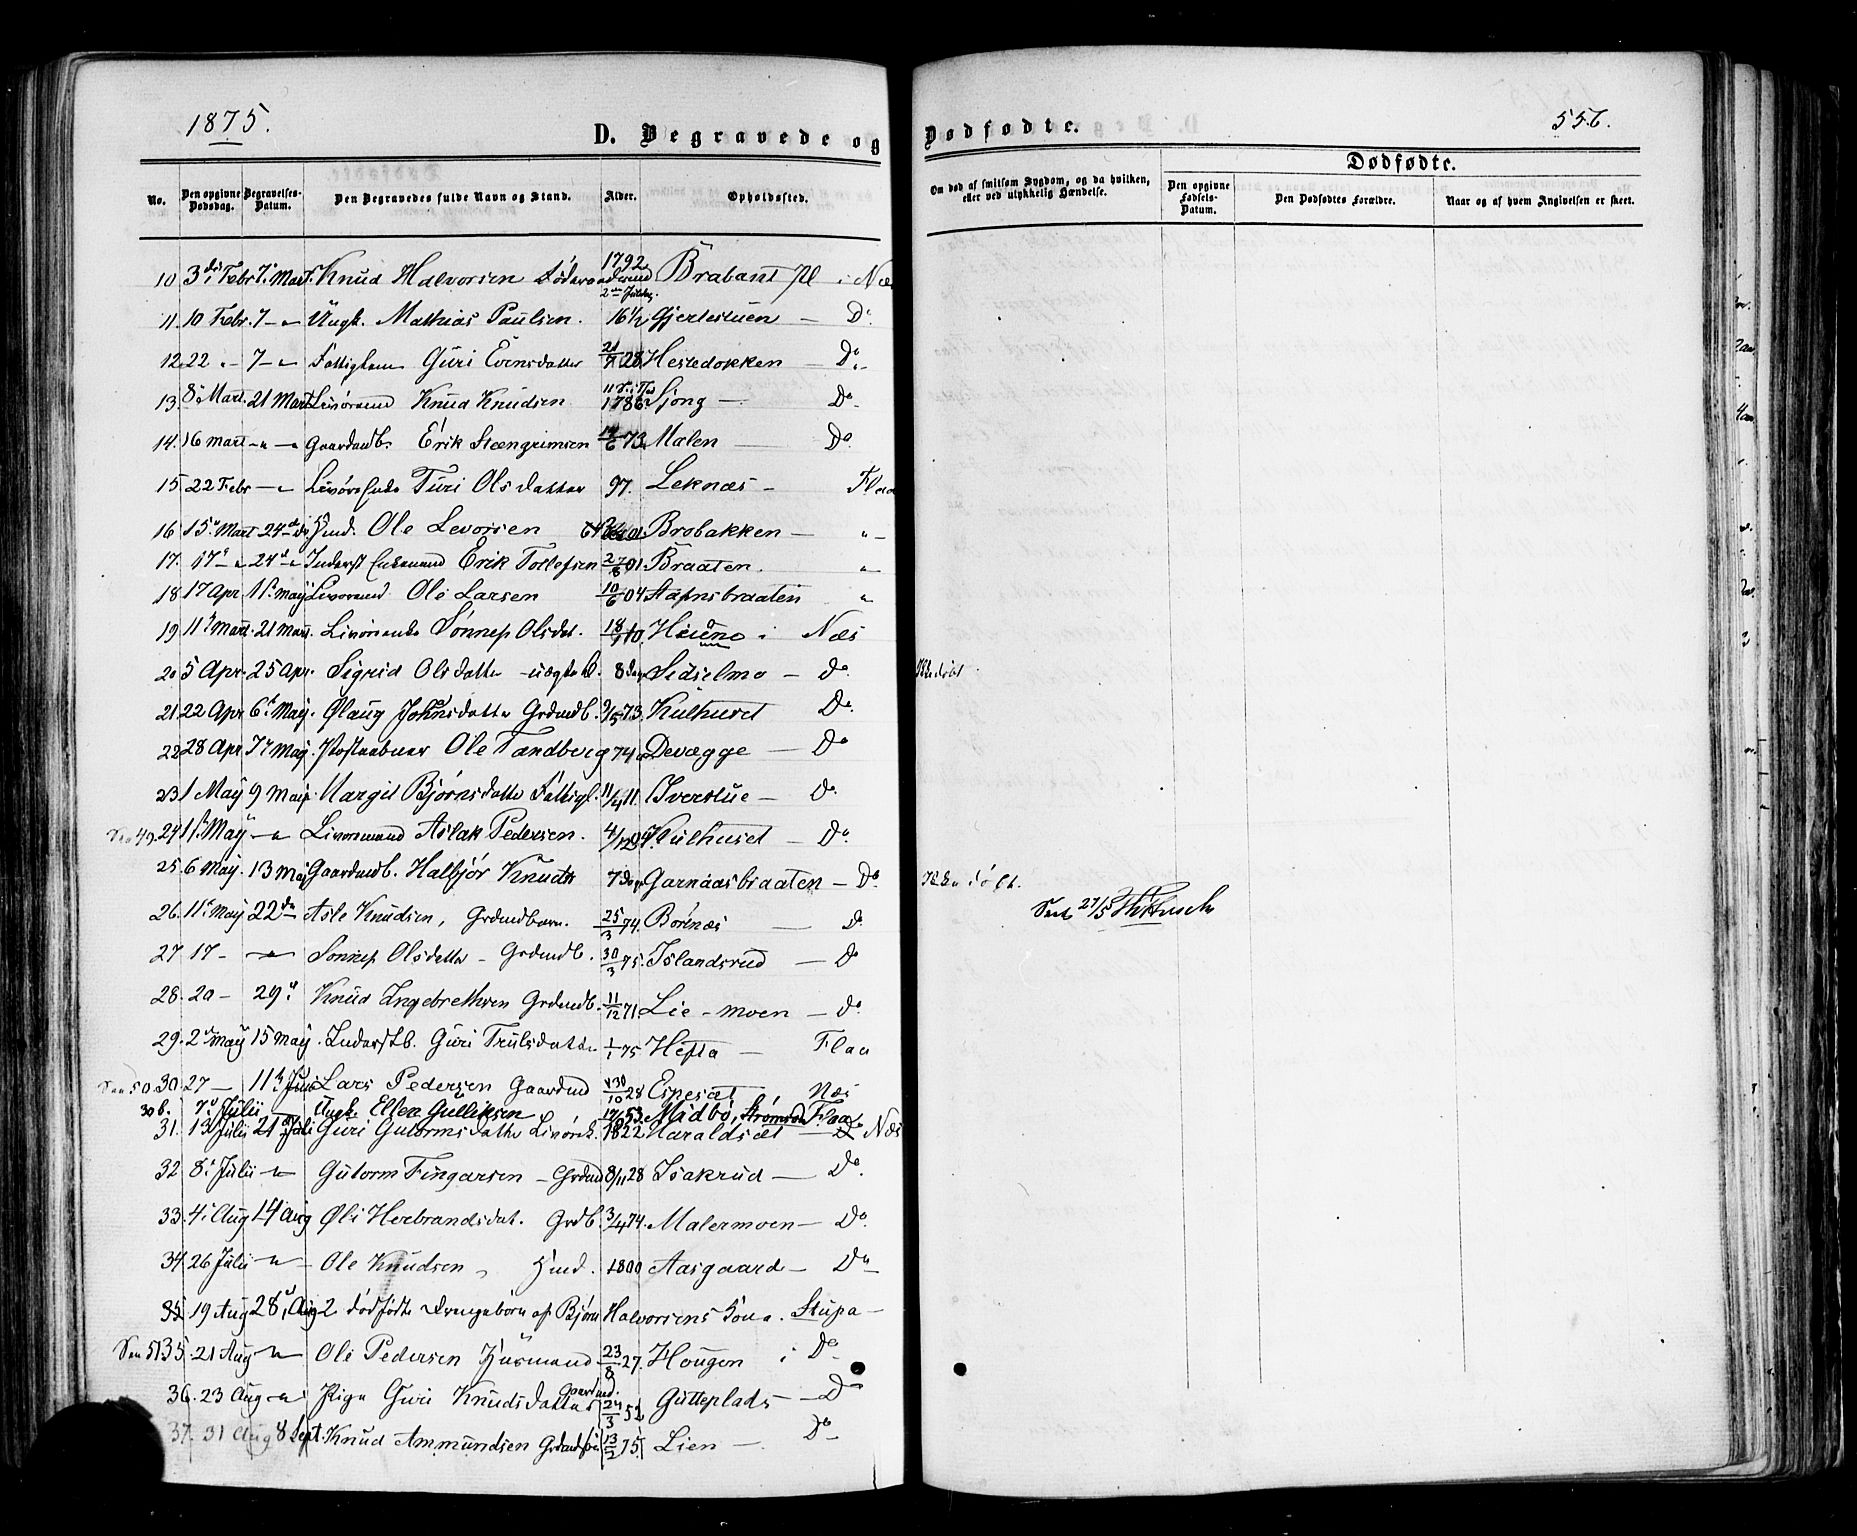 1875.
D. Begravede og Dødfødte.
556.
No.
Den opgivne Dødsdag.
Begravelses-Datum.
Den Begravedes fulde Navn og Stand.
Alder.
Opholdssted.
Om død af smitsom Sygdom, og da hvilken, eller ved ulykkelig Hændelse.
Dødfødte.
Den opgivne Fødsels-Datum.
Den Dødfødtes Forældre.
Naar og af hvem Angivelsen er skeet.
10 3die Febr 7. Mart. Knud Halvorsen 1792 2den Juledag Brabant Pl i Næs
11. 10 Febr. 7 - " Ungk. Mathias Paulsen. 16 1/2 Gjertestuen - Do.
12. 22 " 7 - " Fattiglem Guri Evensdatter 21/7 28 Hestedokken - Do.
13. 8. Mart. 21 Mart Livøremd Knud Knudsen 1786 Sjong - Do.
14. 16 Mart - " - Gaardmdb. Erik Steengrimsen 73 Malen - Do.
15 22 Febr - " Livørsenke Turi Olsdatter 97. Leknæs - Flaa
16 15. Mart 24de do Hmd. Ole Levorsen Brobakken - " -
17. 17 - " 24de - " Inderst Enkemand Erik Tollefsen 01 Braaten. "
18 17 Apr. 1ste May Livøremd Ole Larsen 10/6 04 Stafnsbraaten "
19 11te Mart. 21 Mart. Livørsenke Sønnep Olsdat. 18/ 10. i Næs
20 5 Apr. 25 Apr. Sigrid Olsdatter - uægte b. 8 Dage Sidselmo - Do. Ikke døbt
21 22 Apr 6te May. Ølaug Johnsdatter Grdmdb. 9/5 73. Kulhuset Do.
22 28 Apr. 7de May. Postaabner Ole Tandberg 74 Devægge - Do
23 1 May 9 May. Margit Bjørnsdatter Fattigl. 11/4 11. Iverstue - Do.
Sen 49. 24 1ste May - " Livøremand Aslak Pedersen. 4/12 Kulhuset - Do.
25. 6 May. 13 May Gaardmdb. Halbjør Knudsd 7 Dage Garnaasbraaten - Do. Ikke døbt.
26. 11te May 22de Asle Knudsen, Grdmdbarn. 25/3 74. Børtnæs - Do. Seet 27/5
27 17 - " - Sønnep Olsdatter - Grdmdb. 30/3 75. Islandsrud - Do
28. 20 - 29de Knud Ingebrethsen Grdmdb. 11/12 71 Lie - moen - Do.
29. 2den May 15 May. Inderstb. Guri Trulsdatter 1/1 75 Hefta - Flaa
Sen 50. 30 27 - 11te Juni Lars Pedersen Gaardmd 30/10 28 Espeset Næs
30 b. 7de Julii - Ungk. Ellen Gulliksen 17/6 53. Midbø, Strømsøe Flaa
31. 13 Julii 21de Juli Guri Gulormsdatter Livørek. 1822 Haraldset - Næs
32 8. Julii - " Gutorm Fingarsen - Grdmd 8/11 28 Isakrud - Do.
33. 4. Aug 14 Aug Øli Herbrandsdat. Grdb. 3/4 74. Malermoen - Do.
34. 26 Julii - " - Ole Knudsen Hmd. 1800 Aasgaard - Do
35 19 Aug 28. Aug 2 dødfødte Drengebørn af Bjørn Halvorsens Kone. Stupa -
Sen 51 35. 21 Aug - " Ole Pedersen Husmand 23/8 27. Hougen i Do
36. 23 Aug - " Pige Guri Knudsdatter Gaardmd. 24/3 52 Gutteplads - Do
37. 31 Aug 8 Sept. Knud Ammundsen Grdmdsøn 13/2 75. Lien - Do